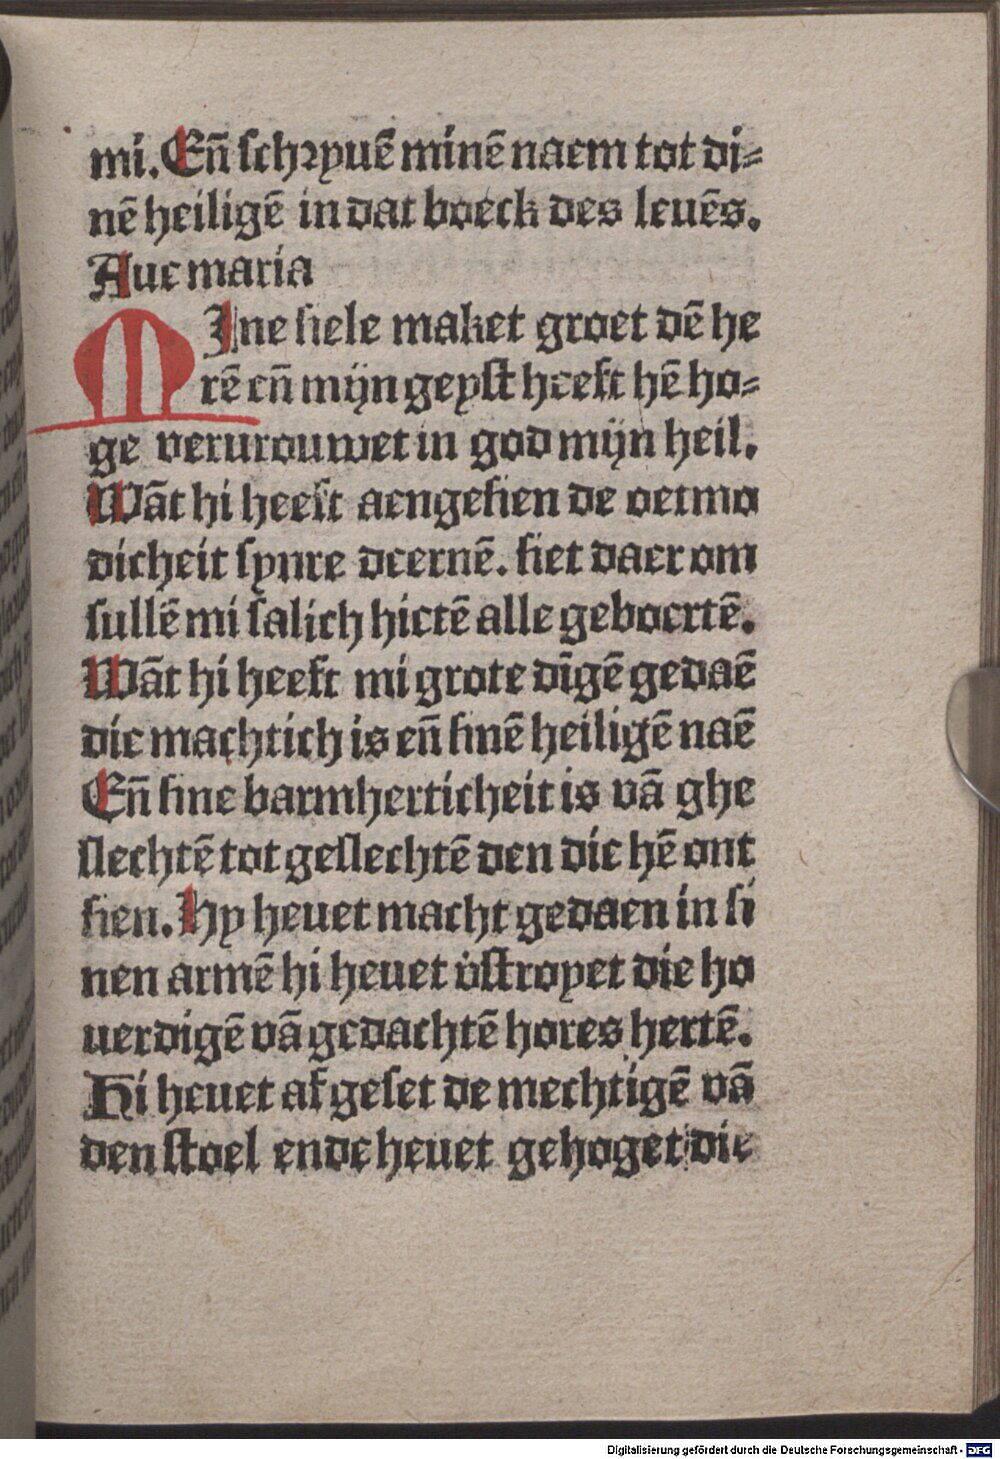 mi. Eñ schryuē minē naem tot di-
nē heiligē in dat boeck des leuēs.
Aue maria
MIne siele maket groet dē he
rē eñ mijn geyst heeft hē ho-
ge verurouwet in god mijn heil.
Wāt hi heeft aengesien de oetmo
dicheit synre deernē. siet daer om
sullē mi salich hietē alle geboertē.
Wāt hi heeft mi grote dīgē gedaē
die machtich is eñ sinē heiligē naē
Eñ sine barmherticheit is vā ghe
slechtē tot geslechtē den die hē ont
sien. Hy heuet macht gedaen in si
nen armē hi heuet v̉stroyet die ho
uerdigē vā gedachtē hores hertē.
Hi heuet af geset de mechtigē vā
den stoel ende heuet gehoget die
Digitalisierung gefördert durch die Deutsche Forschungsgemeinschaft - DFG